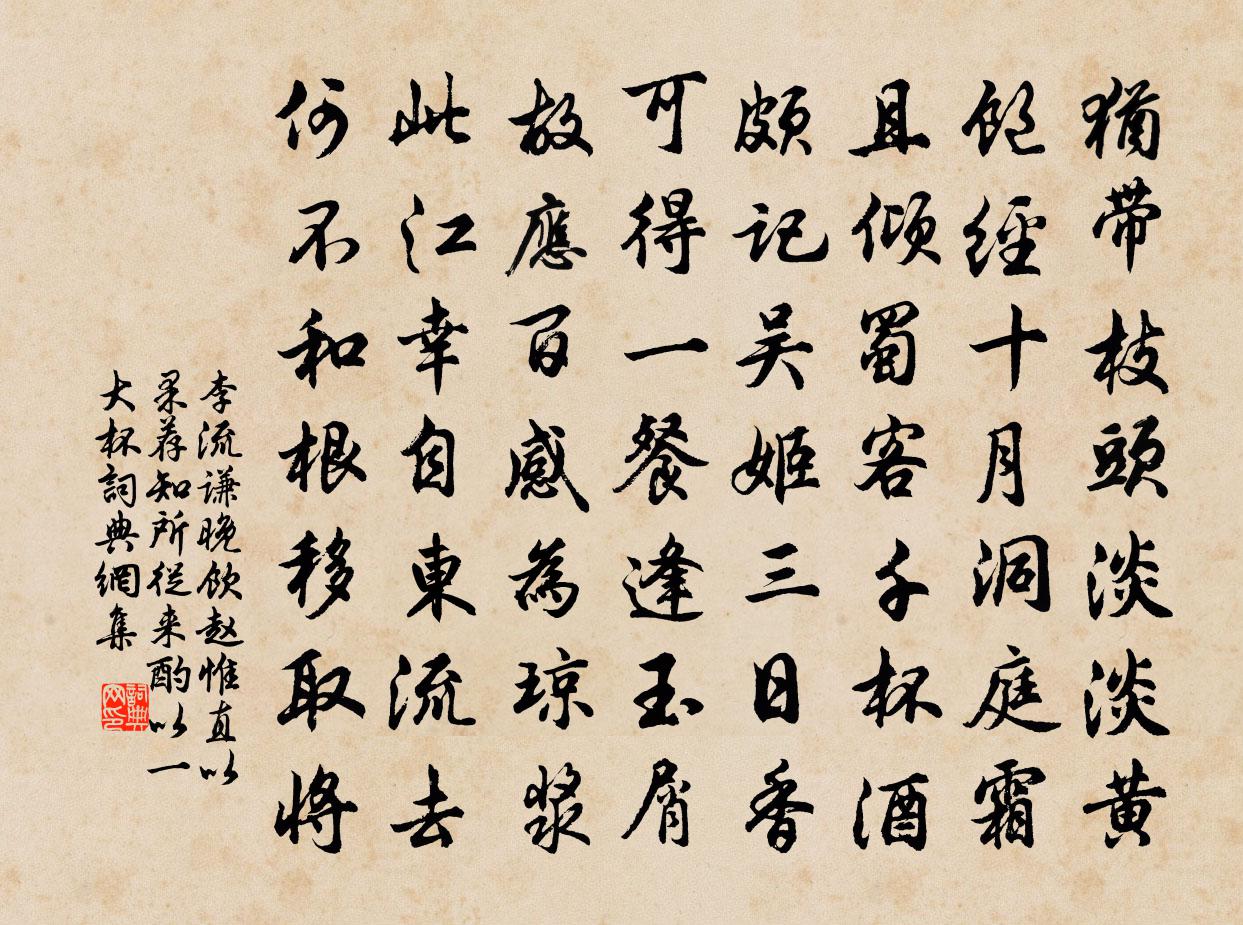 猶帶枝頭淡淡黄
飽經十月洞庭霜
且傾蜀客千杯酒
頗記吴姬三日香
可得一餐逢玉屑
故應百感為瓊漿
此江幸自東流去
何不和根移取將
李流谦晚飲赵惟直以
果荐知所從来酌以一
大杯詞典網集
詞典
网印